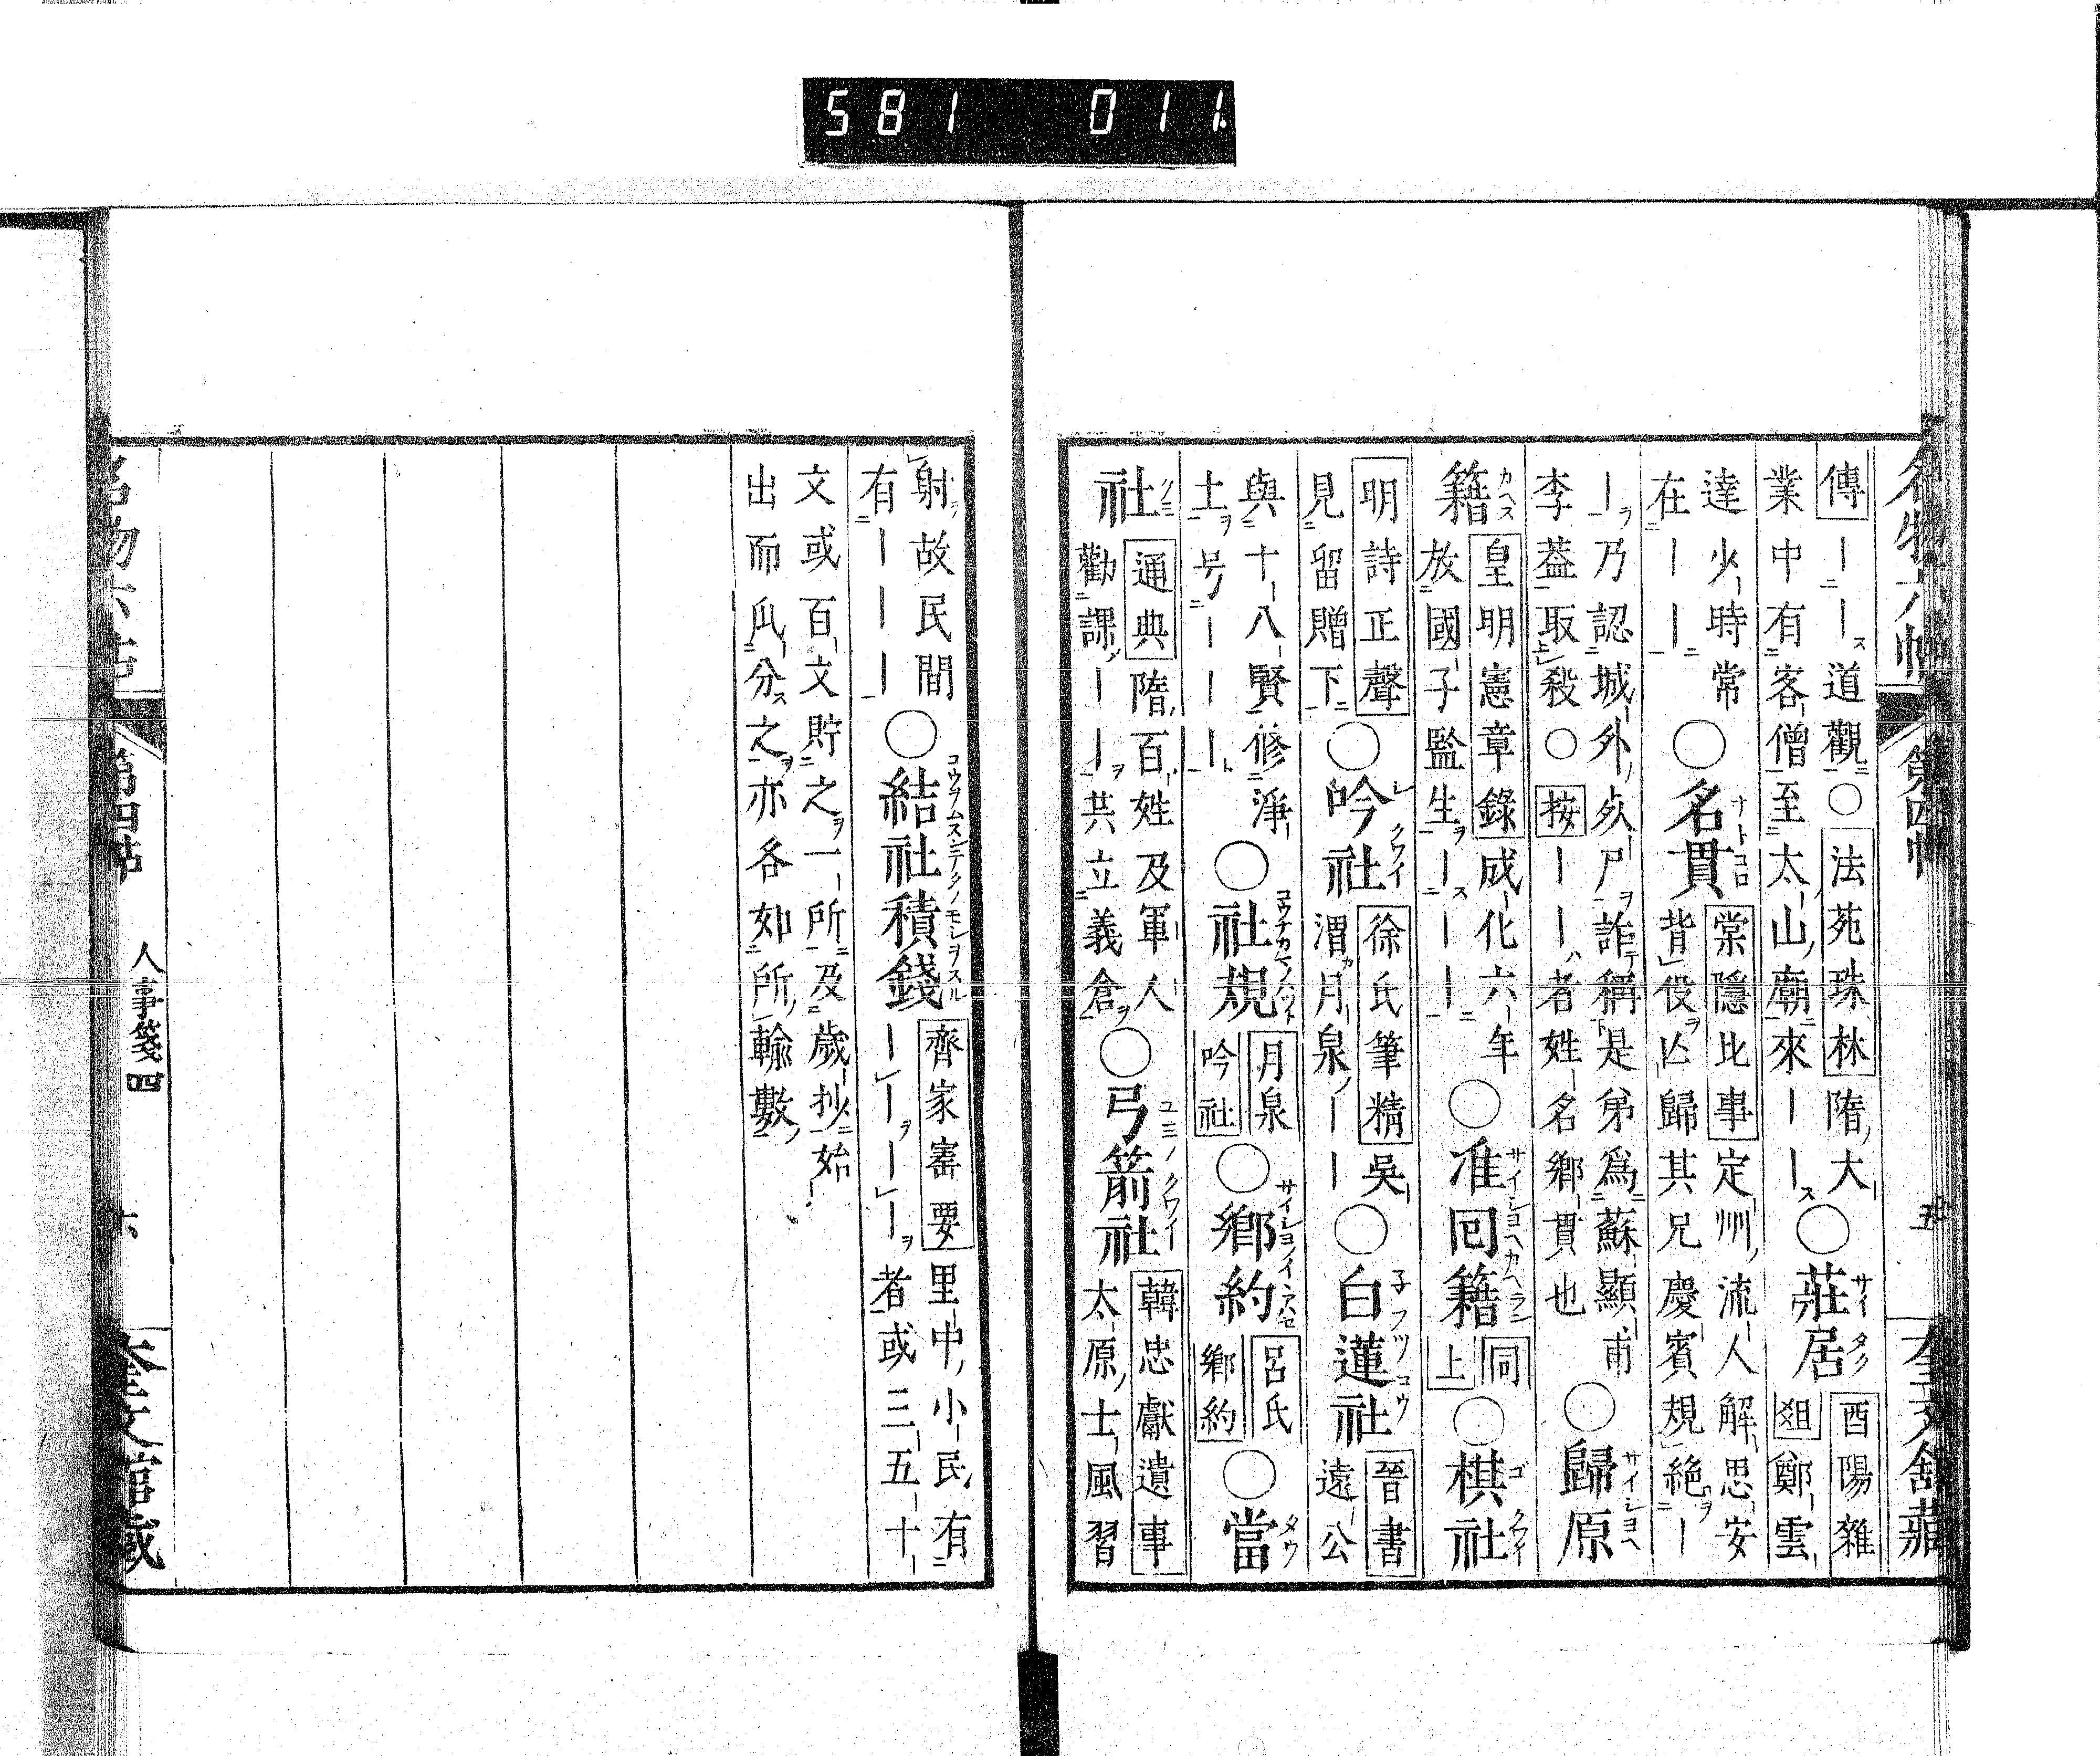 581 011
傳｜｜道觀○法苑珠林隋大
業中有客僧至太山廟來｜｜○莊居酉陽雜
俎鄭雲
達少時常
在｜｜○名貫棠隱比事定州流人解思安
背役亡歸其兄慶賓規絕｜
｜乃認城外死尸詐稱是弟爲蘇顯甫
李葢取殺○按｜｜者姓名鄉貫也○歸原
籍皇明憲章錄成化六年
放國子監生｜｜｜○准回籍同上○棋社
明詩正聲
見留贈下○吟社徐氏筆精吳
渭月泉｜｜○白蓮社晉書
遠公
與十八賢修淨
土号｜｜｜○社規月泉吟社○鄉約呂氏鄉約○當
社通典隋百姓及軍人
勸課｜｜共立義倉○弓箭社韓忠獻遺事
太原士風習
射故民間
有｜｜｜○結社積錢齊家寚要里中小民有
｜｜｜｜者或三五十
文或百文貯之一所及歲抄始
出而瓜分之亦各如所輸數
人事箋四